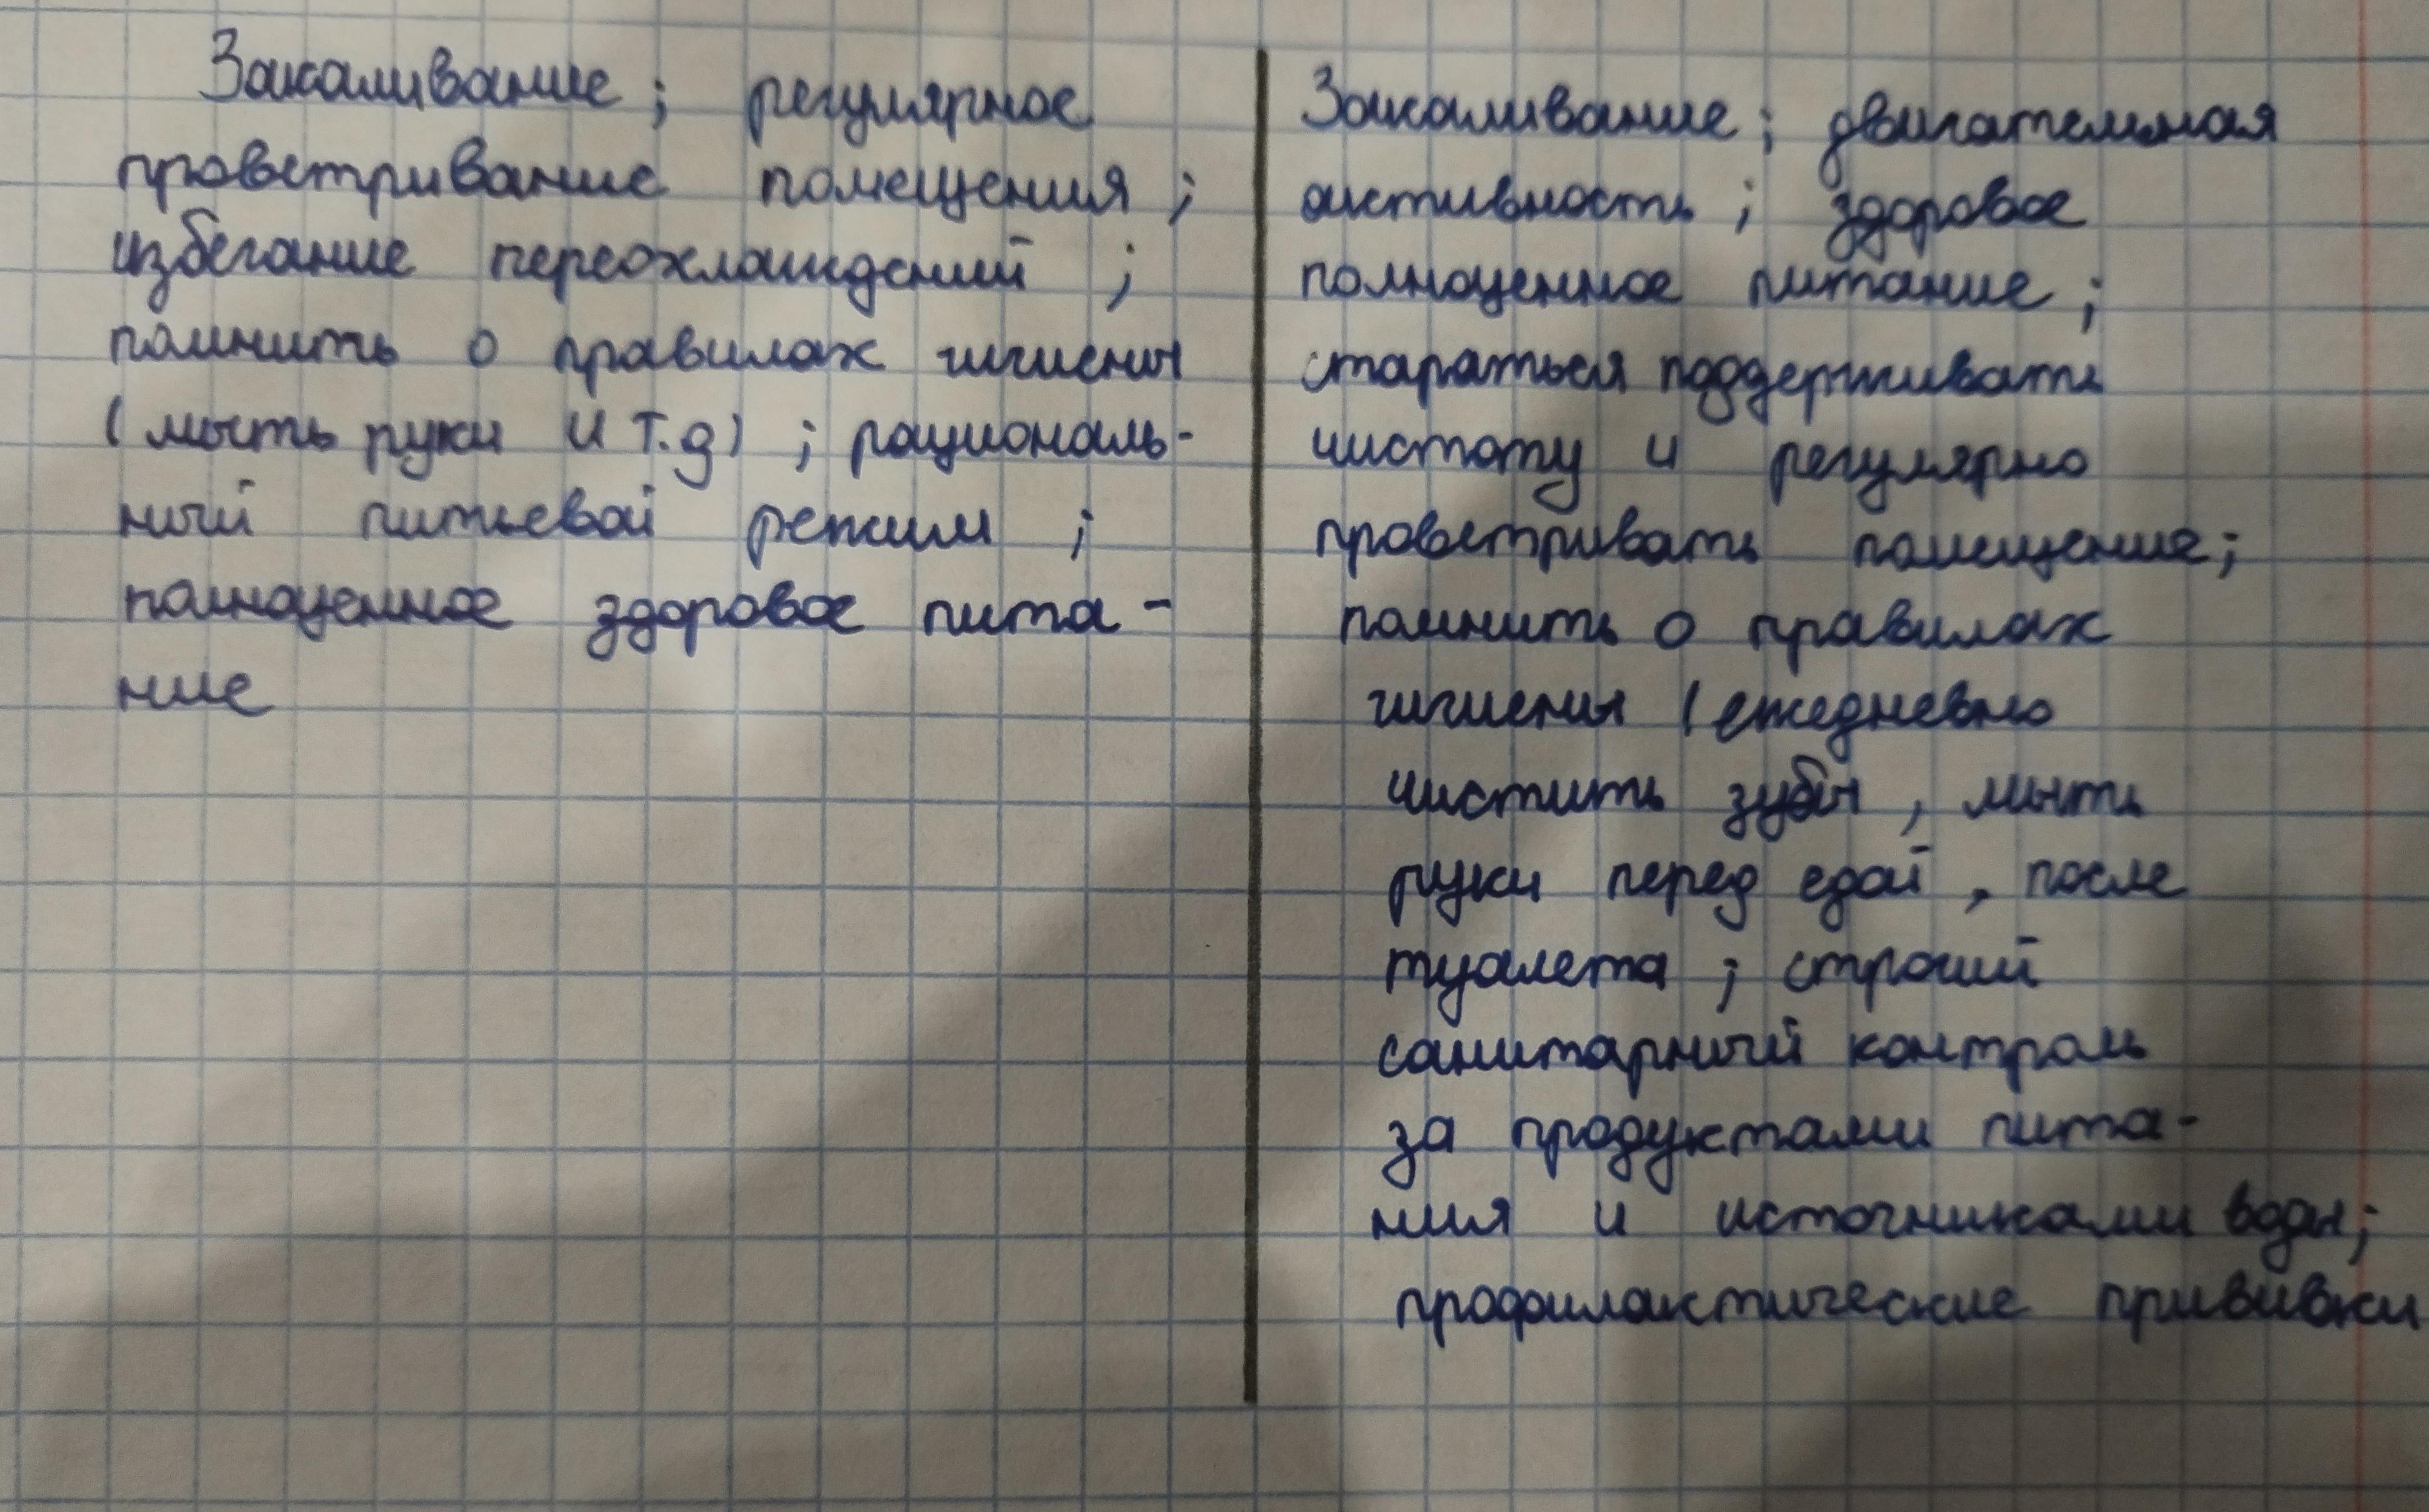 Закаливание ; регулярное
проветривание помещения ;
избегание переохлаждений ;
помнить о правилах гигиены
(мыть руки и т.д) ; рациональ-
ный питьевой режим ;
полноценное здоровое пита-
ние
Закаливание ; двигательная
активность ; здоровое
полноценное питание ;
стараться поддерживать
чистоту и регулярно
проветривать помещение ;
помнить о правилах
гигиены (ежедневно
чистить зубы , мыть
руки перед едой , после
туалета ; строгий
санитарный контроль
за продуктами пита-
ния и источниками воды ;
профилактические прививки